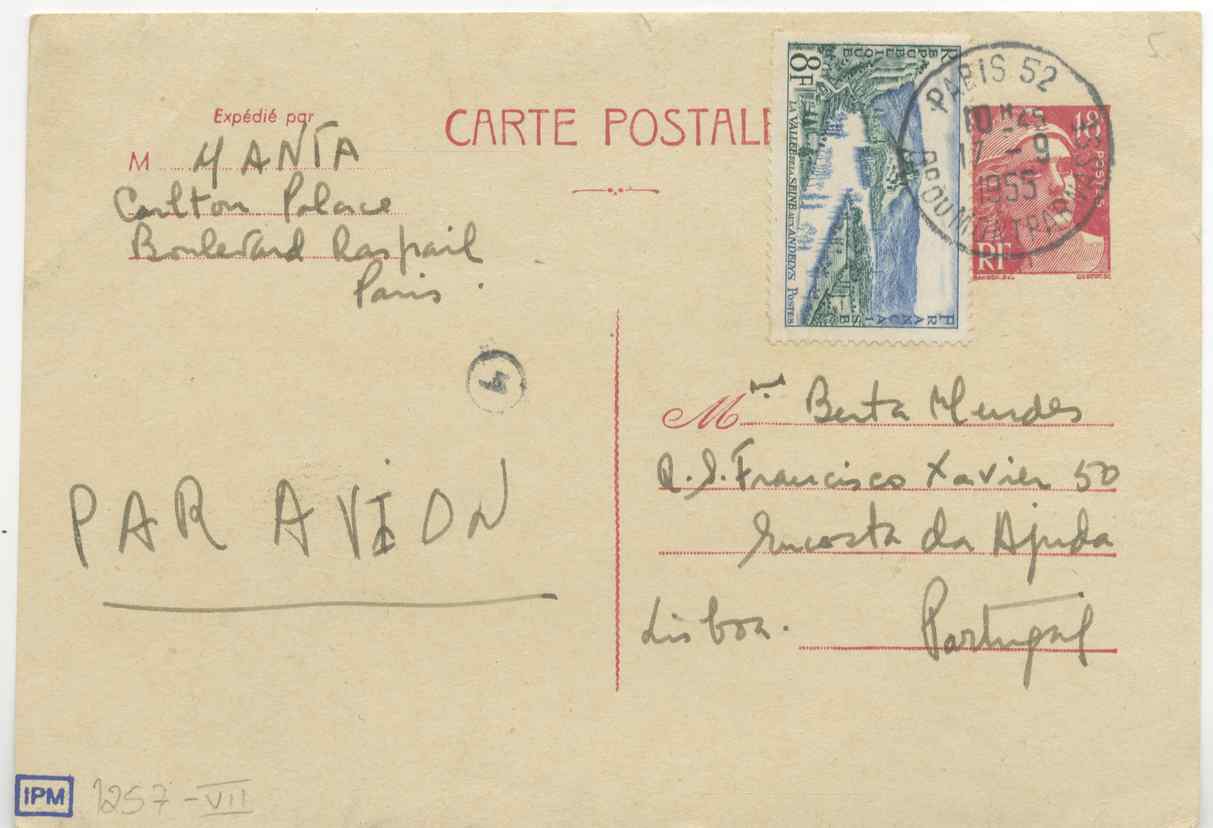 5.
Expédié par
M MANTA
Carlton Palace
Boulevard Raspail
Paris.
CARTE POSTALE
8F
RÉPUBLIQUE
FRANÇAISE
LA VALLÉE DE LA SEINE AUX ANDELYS POSTES
PARIS 52
10 H 45
17 - 9
1955
18
POSTES
RF
4
PAR AVION
Mme Berta Mendes
R. S. Francisco Xavier 50
Encosta da Ajuda
Lisboa. Portugal
IPM 1257-VII